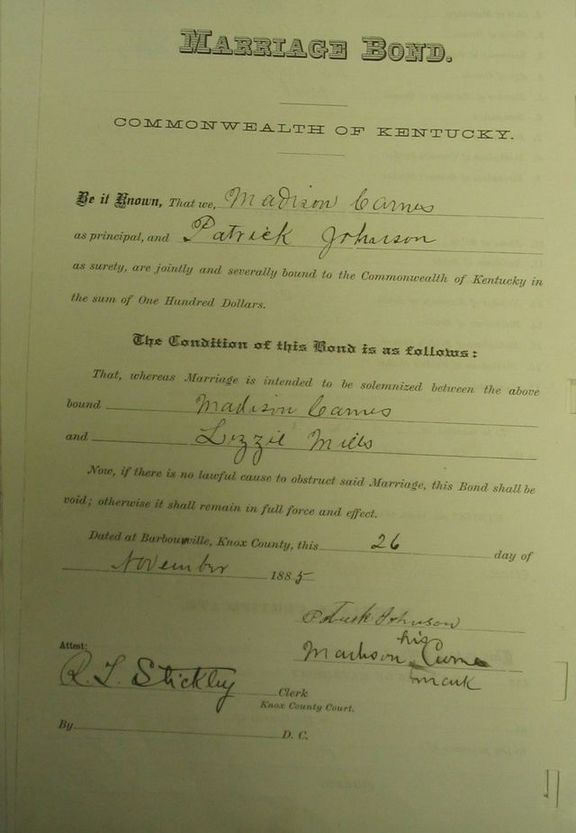 MARRIAGE BOND.
COMMONWEALTH OF KENTUCKY.
Be it Known, That we, Madison Carnes
as principal, and Patrick Johnson
as surety, are jointly and severally bound to the Commonwealth of Kentucky in
the sum of One Hundred Dollars.
The Condition of this Bond is as follows:
That, whereas Marriage is intended to be solemnized between the above
bound Madison Carnes
and Lizzie Mills
Now, if there is no lawful cause to obstruct said Marriage, this Bond shall be
void; otherwise it shall remain in full force and effect.
Dated at Barbourville, Knox County, this 26 day of
November 1885
Johnson
his
Madison
mark
Attest:
R. L. Stickley Clerk
Knox County Court.
By D. C.